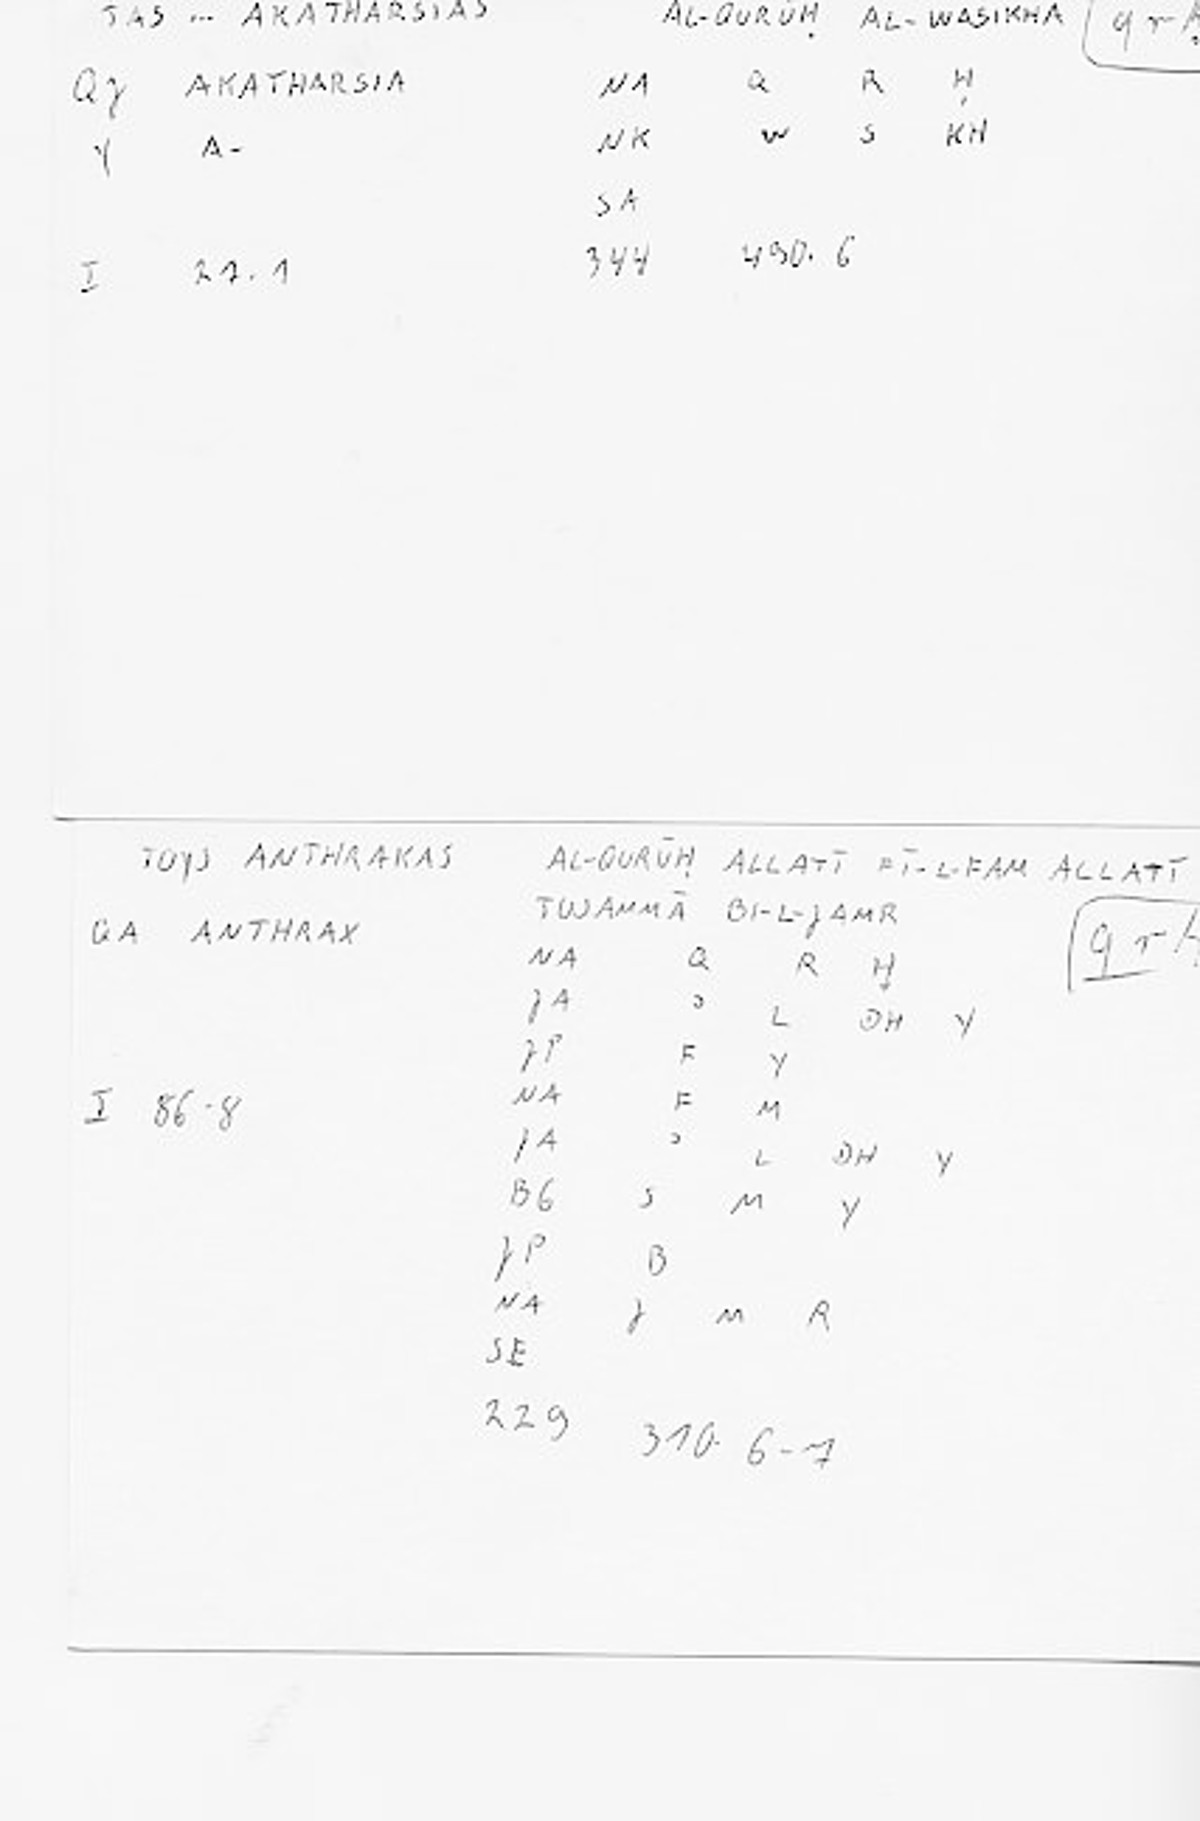 TAS ... AKATHARSIAS AL-QURŪḤ AL-WASIKHA
QJ AKATHARSIA NA Q R Ḥ
Y A- NK W S KH
SA
I 27.1 344 490.6
TOYS ANTHRAKAS AL-QURŪḤ ALLATĪ FĪ-L-FAM ALLATĪ
TUSAMMĀ BI-L-JAMR
GA ANTHRAX
NA Q R Ḥ
JA ʾ L DH Y
JP F Y
I 86-8 NA F M
JA ʾ L DH Y
BG S M Y
JP B
NA J M R
SE
229 310.6-7